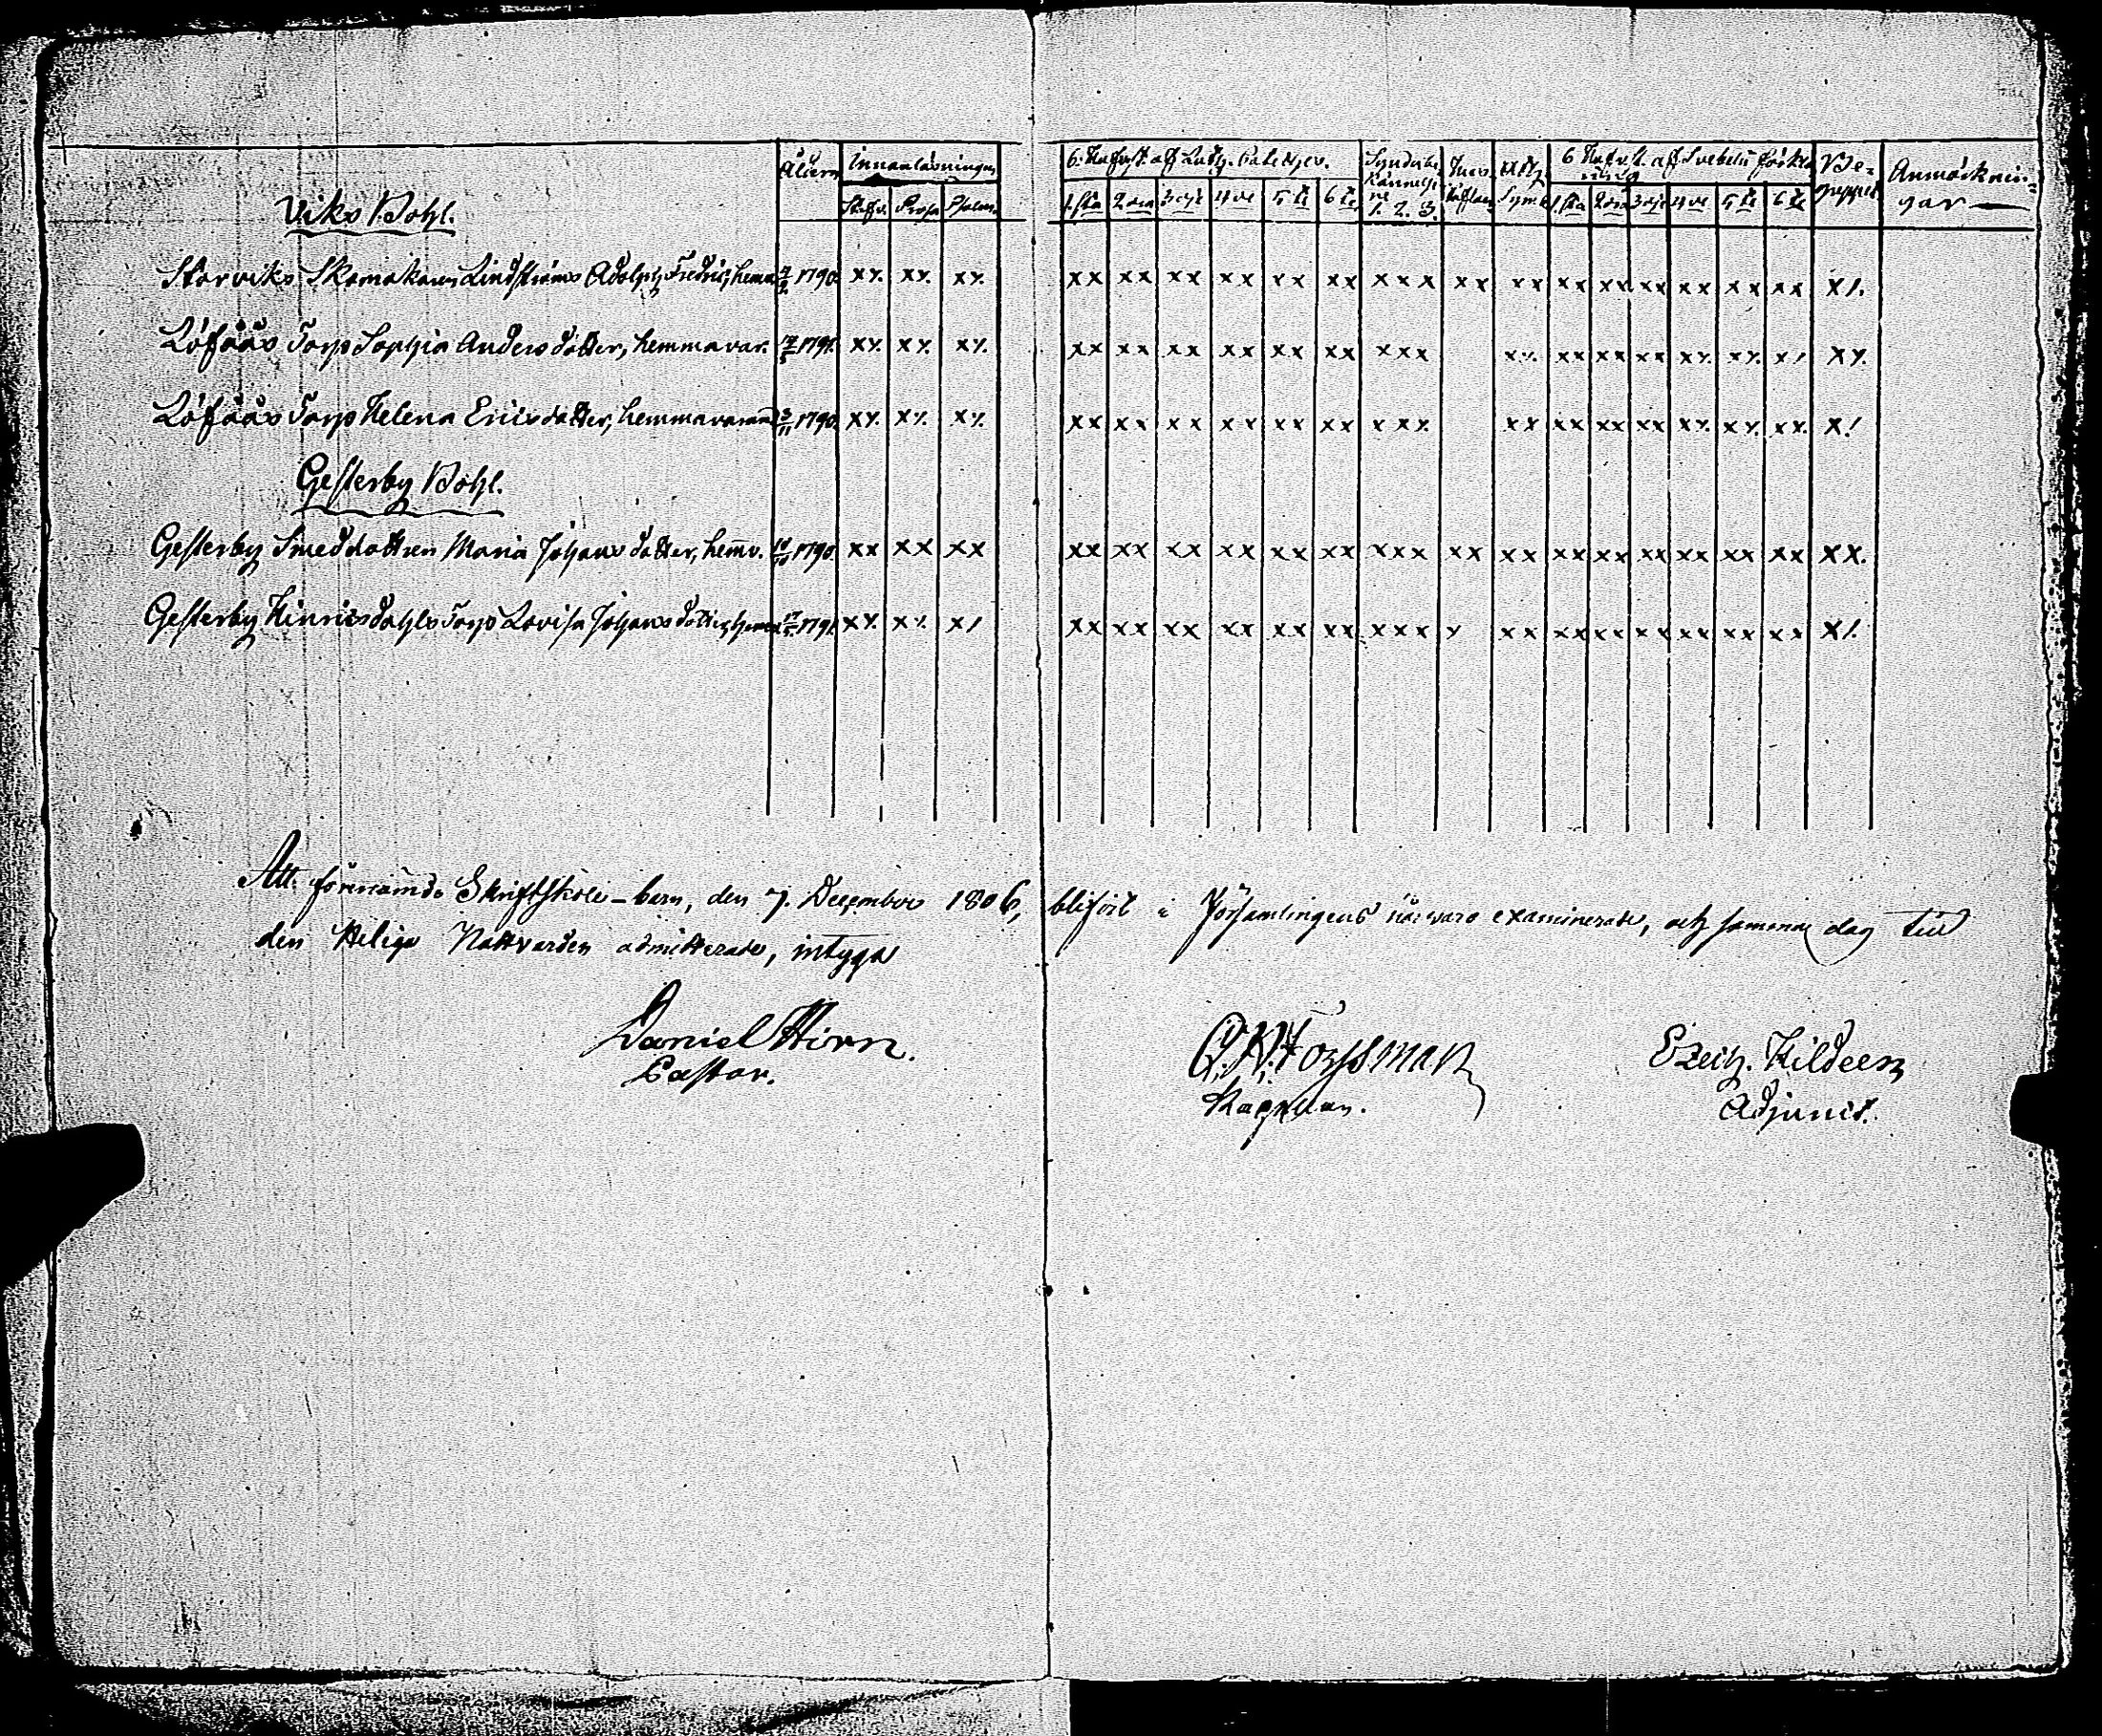 Åldern Innanläsningen 6. Hufvst. af Luth. Cateches. Syndabe- Hus- Ath. 6 Hufvst. af Svebelii förkla- Be- Anmärknin-
kännelse taflan Symb. ring greppet. gar
Stafv. Prosa Psalm. 1. sta 2. dra 3 dje 4 de 5 te 6 te 1. 2. 3. 1. sta 2 dra 3 dje 4 de 5 te 6 te
Viks Bohl.
Storviks Skomakaren Lindströms Adolph Fredric, hemv. 1790. x/. x/. x/. xx xx xx xx xx xx xxx xx xx xx xx xx xx xx xx x/.
Löfåås Torp Sophia Anders dotter, hemmavar. 1791. x/. x/. x/. xx xx xx xx xx xx xxx x/. xx xx xx x/. x/. x/ x/.
Löfåås Torp Helena Erics dotter, hemmavarand 3/11 1790. x/. x/. x/. xx xx xx xx xx xx xx/. xx xx xx xx x/. x/. x/. x/
Gesterby Bohl.
Gesterby Smeddottren Maria Johans dotter, hemv. 1790. xx xx xx xx xx xx xx xx xx xxx xx xx xx xx xx xx xx xx xx.
Gesterby Hinricsdahls Torp Lovisa Johans dotter, hemv. 1791. x/. x/. x/ xx xx xx xx xx xx xxx / xx xx xx xx xx xx xx x/.
Att förenämde Skriftskole-barn, den 7. December 1806, blifvit i Församlingens närvaro examinerade, och samma dag till
den Heliga Nattvarden admitterade, intyga
Daniel Hirn. Forssman Ezech. Hildeen
Pastor. Kapellan. Adjunct.